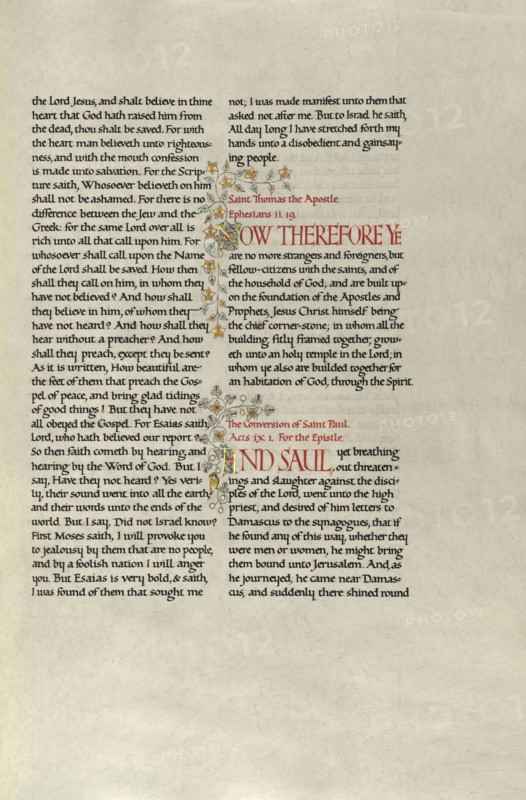 the Lord Jesus, and shalt believe in thine
heart that God hath raised him from
the dead, thou shalt be saved. For with
the heart man believeth unto righteous=
ness, and with the mouth confession
is made unto salvation. For the Scrip=
ture saith, Whosoever believeth on him
shall not be ashamed. For there is no
difference between the Jew and the
Greek: for the same Lord over all is
rich unto all that call upon him. For
whosoever shall call upon the Name
of the Lord shall be saved. How then
shall they call on him, in whom they
have not believed? And how shall
they believe in him, of whom they
have not heard? And how shall they
hear without a preacher? And how
shall they preach, except they be sent?
As it is written, How beautiful are
the feet of them that preach the Gos=
pel of peace, and bring glad tidings
of good things! But they have not
all obeyed the Gospel. For Esaias saith,
Lord, who hath believed our report?
So then faith cometh by hearing, and
hearing by the Word of God. But I
say, Have they not heard? Yes veri=
ly, their sound went into all the earth,
and their words unto the ends of the
world. But I say, Did not Israel know?
First Moses saith, I will provoke you
to jealousy by them that are no people,
and by a foolish nation I will anger
you. But Esaias is very bold, & saith,
I was found of them that sought me
not; I was made manifest unto them that
asked not after me. But to Israel he saith,
All day long I have stretched forth my
hands unto a disobedient and gainsay=
ing people.
Saint Thomas the Apostle.
Ephesians ii. 19.
NOW THEREFORE YE
are no more strangers and foreigners, but
fellow-citizens with the saints, and of
the household of God; and are built up=
on the foundation of the Apostles and
Prophets, Jesus Christ himself being
the chief corner-stone; in whom all the
building fitly framed together, grow=
eth unto an holy temple in the Lord; in
whom ye also are builded together for
an habitation of God, through the Spirit.
The Conversion of Saint Paul.
Acts ix. 1. For the Epistle.
AND SAUL, yet breathing
out threaten=
ings and slaughter against the disci=
ples of the Lord, went unto the high
priest, and desired of him letters to
Damascus to the synagogues, that if
he found any of this way, whether they
were men or women, he might bring
them bound unto Jerusalem. And, as
he journeyed, he came near Damas=
cus, and suddenly there shined round
PHOTO12